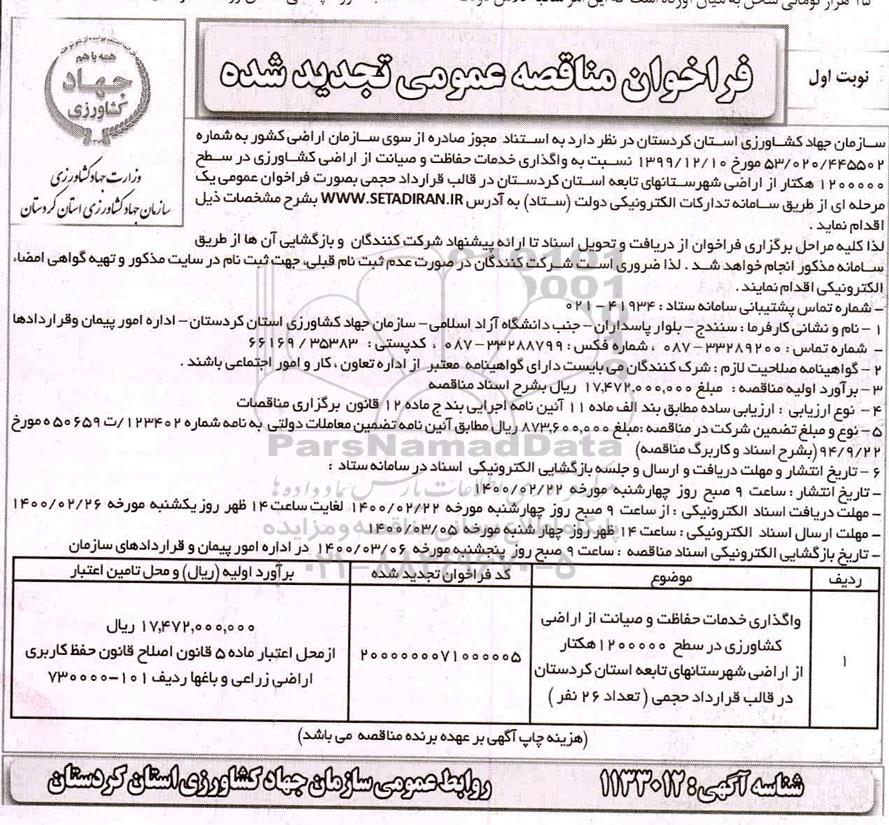 فراخوان مناقصه عمومی تجدید شده
نوبت اول
همه با هم
جهاد
کشاورزی
وزارت جهاد کشاورزی
سازمان جهاد کشاورزی استان کردستان
سازمان جهاد کشاورزی استان کردستان در نظر دارد به استناد مجوز صادره از سوی سازمان اراضی کشور به شماره
۵۳/۰۲۰/۴۴۵۵۰۲ مورخ ۱۳۹۹/۱۲/۱۰ نسبت به واگذاری خدمات حفاظت و صیانت از اراضی کشاورزی در سطح
۱۲۰۰۰۰۰ هکتار از اراضی شهرستانهای تابعه استان کردستان در قالب قرارداد حجمی بصورت فراخوان عمومی یک
مرحله ای از طریق سامانه تدارکات الکترونیکی دولت (ستاد) به آدرس WWW.SETADIRAN.IR بشرح مشخصات ذیل
اقدام نماید .
لذا کلیه مراحل برگزاری فراخوان از دریافت و تحویل اسناد تا ارائه پیشنهاد شرکت کنندگان و بازگشایی آن ها از طریق
سامانه مذکور انجام خواهد شد . لذا ضروری است شرکت کنندگان در صورت عدم ثبت نام قبلی، جهت ثبت نام در سایت مذکور و تهیه گواهی امضاء
الکترونیکی اقدام نمایند .
– شماره تماس پشتیبانی سامانه ستاد : ۴۱۹۳۴ – ۰۲۱
۱ – نام و نشانی کارفرما : سنندج – بلوار پاسداران – جنب دانشگاه آزاد اسلامی – سازمان جهاد کشاورزی استان کردستان – اداره امور پیمان وقراردادها
– شماره تماس : ۳۳۲۸۹۲۰۰ – ۰۸۷ ، شماره فکس : ۳۳۲۸۸۷۹۹ – ۰۸۷ ، کدپستی : ۳۵۳۸۳ / ۶۶۱۶۹
۲ – گواهینامه صلاحیت لازم : شرک کنندگان می بایست دارای گواهینامه معتبر از اداره تعاون ، کار و امور اجتماعی باشند .
۳ – برآورد اولیه مناقصه : مبلغ ۱۷,۴۷۲,۰۰۰,۰۰۰ ریال بشرح اسناد مناقصه
۴ – نوع ارزیابی : ارزیابی ساده مطابق بند الف ماده ۱۱ آئین نامه اجرایی بند ج ماده ۱۲ قانون برگزاری مناقصات
۵ – نوع و مبلغ تضمین شرکت در مناقصه :مبلغ ۸۷۳,۶۰۰,۰۰۰ ریال مطابق آئین نامه تضمین معاملات دولتی به نامه شماره ۱۲۳۴۰۲/ت ۵۰۶۵۹ ه مورخ
۹۴/۹/۲۲ (بشرح اسناد و کاربرگ مناقصه)
۶ – تاریخ انتشار و مهلت دریافت و ارسال و جلسه بازگشایی الکترونیکی اسناد در سامانه ستاد :
– تاریخ انتشار : ساعت ۹ صبح روز چهارشنبه مورخه ۱۴۰۰/۰۲/۲۲
– مهلت دریافت اسناد الکترونیکی : از ساعت ۹ صبح روز چهارشنبه مورخه ۱۴۰۰/۰۲/۲۲ لغایت ساعت ۱۴ ظهر روز یکشنبه مورخه ۱۴۰۰/۰۲/۲۶
– مهلت ارسال اسناد الکترونیکی : ساعت ۱۴ ظهر روز چهارشنبه مورخه ۱۴۰۰/۰۳/۰۵
– تاریخ بازگشایی الکترونیکی اسناد مناقصه : ساعت ۹ صبح روز پنجشنبه مورخه ۱۴۰۰/۰۳/۰۶ در اداره امور پیمان و قراردادهای سازمان
ParsNamadData
ردیف
موضوع
کد فراخوان تجدید شده
برآورد اولیه (ریال) و محل تامین اعتبار
۱
واگذاری خدمات حفاظت و صیانت از اراضی
کشاورزی در سطح ۱۲۰۰۰۰۰ هکتار
از اراضی شهرستانهای تابعه استان کردستان
در قالب قرارداد حجمی ( تعداد ۲۶ نفر )
۲۰۰۰۰۰۰۰۷۱۰۰۰۰۰۵
۱۷,۴۷۲,۰۰۰,۰۰۰ ریال
ازمحل اعتبار ماده ۵ قانون اصلاح قانون حفظ کاربری
اراضی زراعی و باغها ردیف ۱۰۱-۷۳۰۰۰۰
(هزینه چاپ آگهی بر عهده برنده مناقصه می باشد)
شناسه آگهی : ۱۱۳۳۰۱۲
روابط عمومی سازمان جهاد کشاورزی استان کردستان